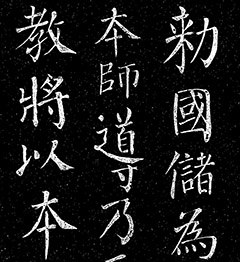 勑國儲為
本師導乃
教將以本